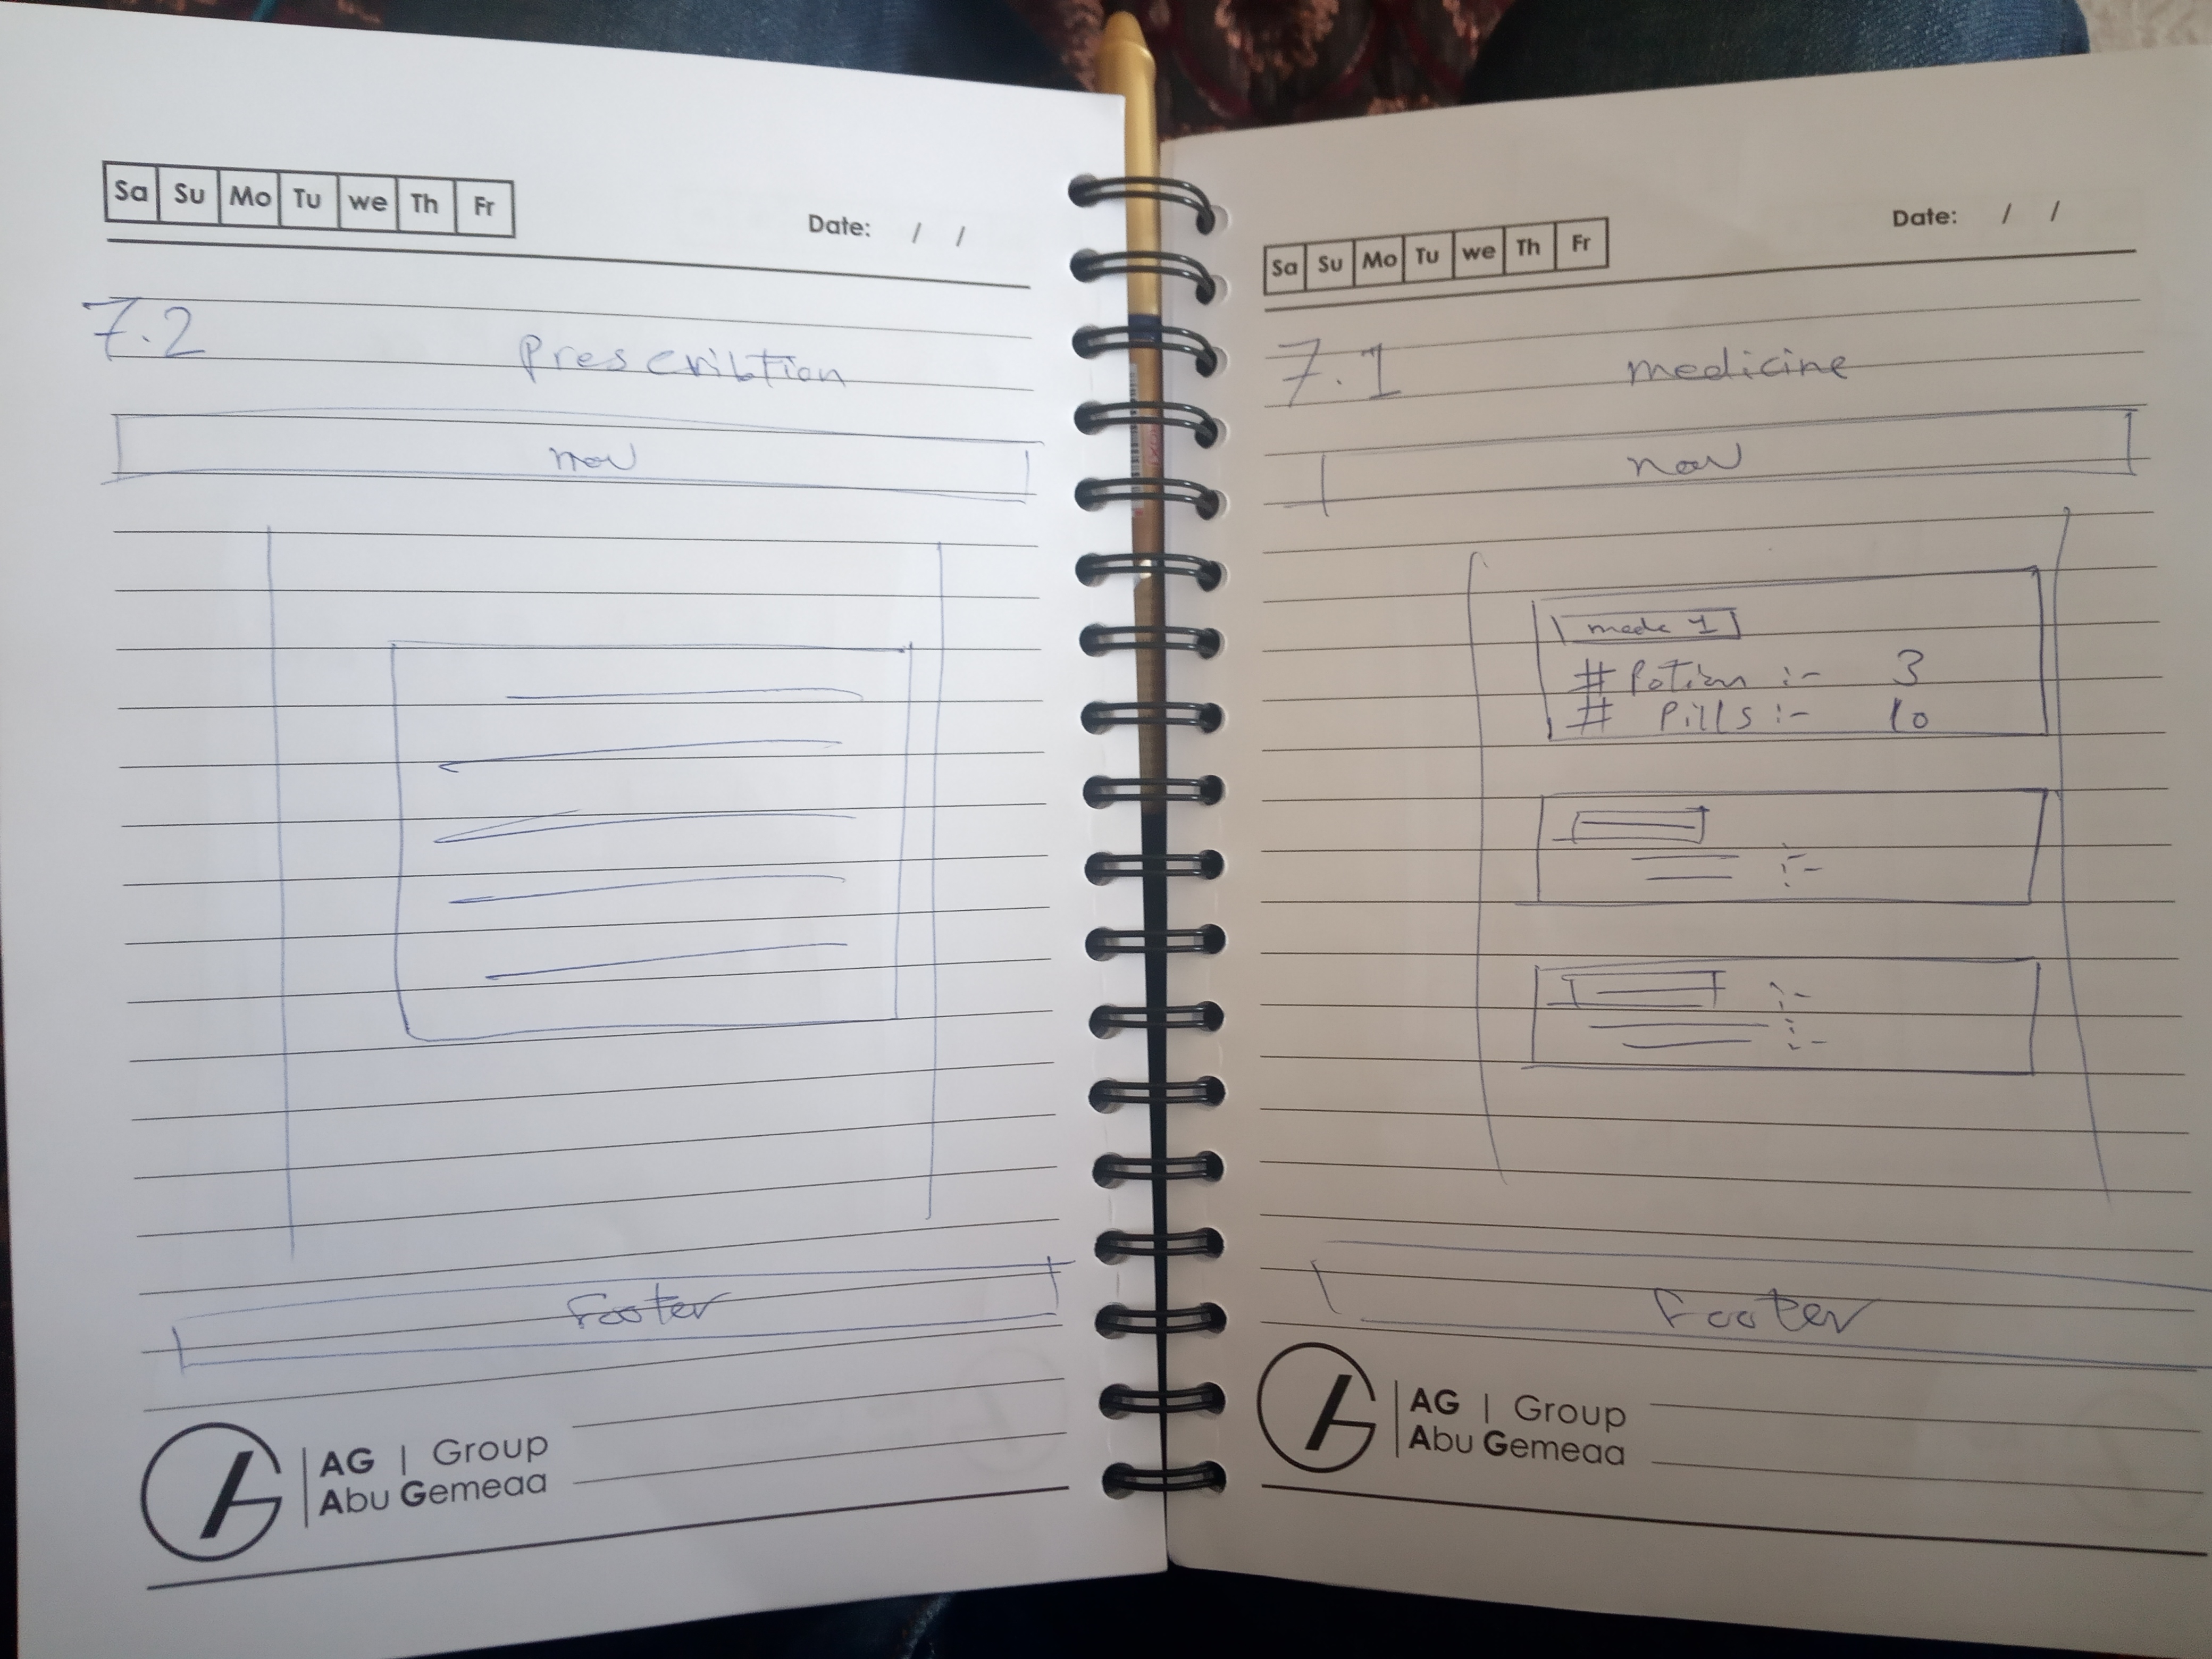 Sa Su Mo Tu we Th Fr
Date: / /
7.2 Prescribtion
nav
Footer
AG | Group
Abu Gemeaa
Sa Su Mo Tu we Th Fr
Date: / /
7.1 medicine
nav
1
# Potion :- 3
# Pills :- 10
Footer
AG | Group
Abu Gemeaa